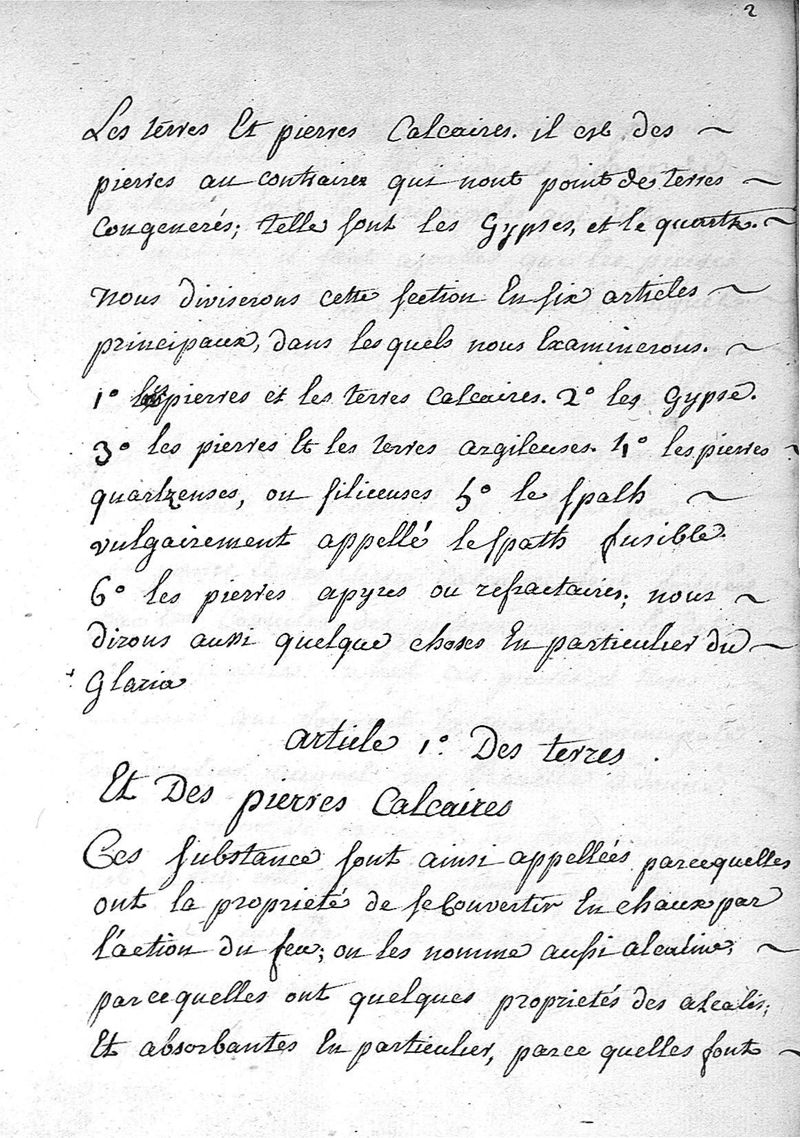 2
Les terres Et pierres Calcaires. il est des ~
pierres au contraires qui nont point de terres ~
Congenerés; telle sont les Gypses, et le quartz. ~
nous diviserons cette section En six articles ~
principaux, dans lesquels nous Examinerons. ~
1° les pierres et les terres Calcaires. 2° les Gypse.
3° les pierres Et les terres argileuses. 4° les pierres ~
quartzeuses, ou siliceuses 5° le spath ~
vulgairement appellé le spath fusible.
6° les pierres apyres ou refractaires; nous ~
dirons aussi quelque choses En particulier du ~
Glaria
article 1° Des terres .
Et Des pierres Calcaires
Ces substance sont ainsi appellées parcequelles
ont la proprieté de se Convertir En chaux par
l'action du feu; on les nomme aussi alcaline, ~
parcequelles ont quelques proprietés des alcalis;
Et absorbantes En particulier, parce quelles font ~